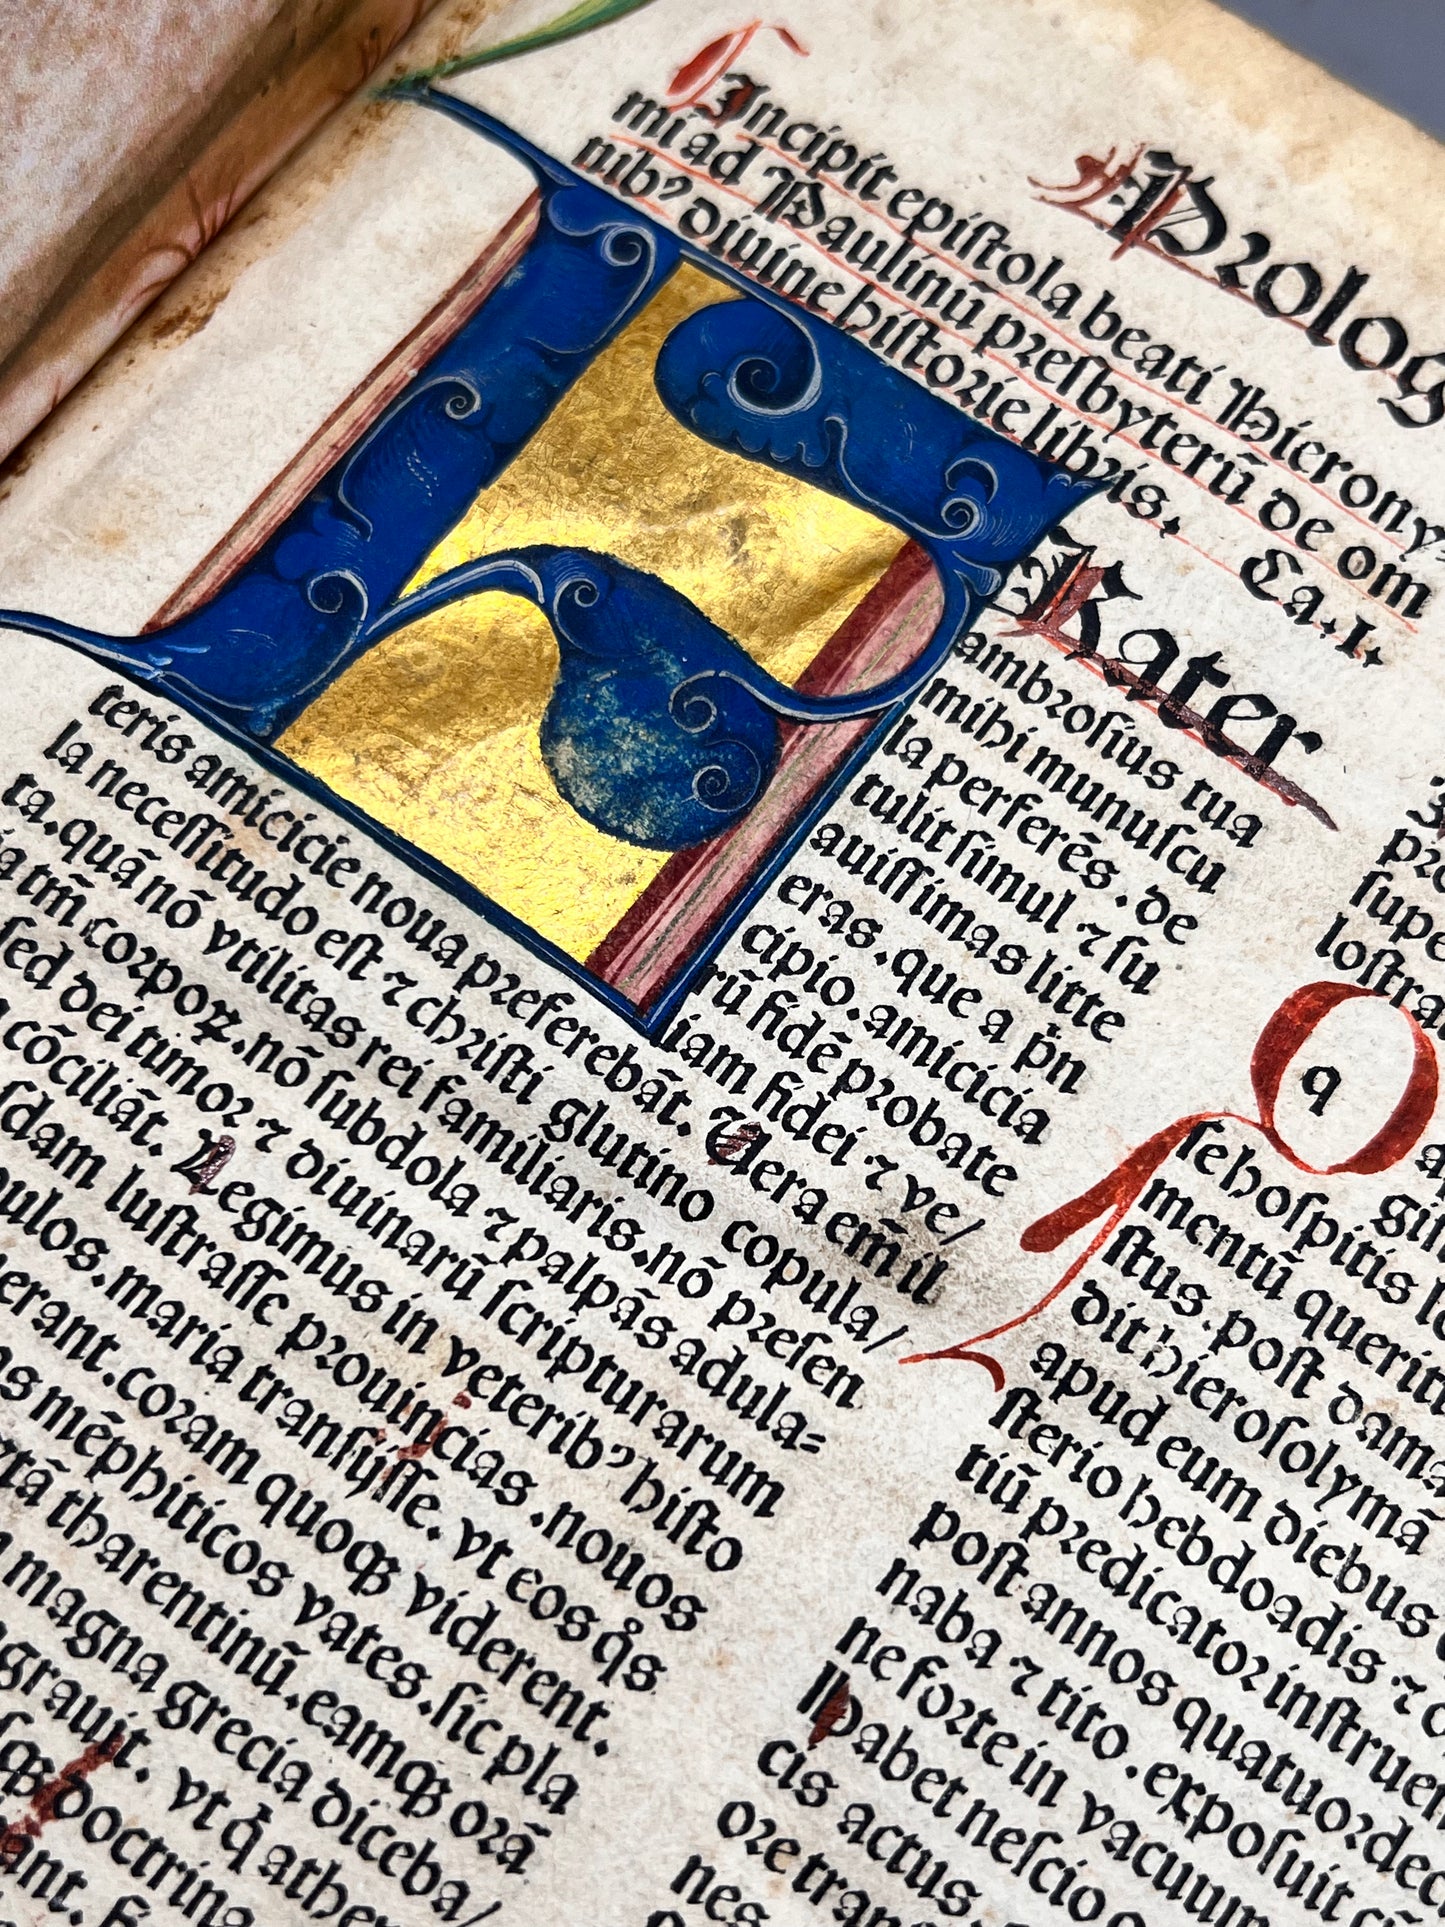 Prolog
Incipit epistola beati Hierony-
mi ad Paulinū presbyterū de om
nibꝰ diuine historie libris. Ca.I.
FRater
ambrosius tua
mihi munuscu
la perferēs . de
tulit simul ⁊ su
auissimas litte
eras . que a pͥn
cipio . amicicia
rū fidē probate
iam fidei ⁊ ve/
teris amicicie noua preferebāt. Uera em̄ il
la necessitudo est ⁊ christi glutino copula/
ta.quā nō vtilitas rei familiaris.nō presen
tm̄ corpoꝝ.nō subdola ⁊ palpās adula=
sed dei timor ⁊ diuinarū scripturarum
cōciliāt. Legimus in veteribꝰ histo
sdam lustrasse prouincias .nouos
pulos.maria transijsse. vt eos q̊s
erant.coram quoqꝫ viderent.
as mēphiticos vates.sic pla
tā tharentinū.eamqꝫ orā
magna grecia diceba/
grauit. vt q̊ athe
qꝫ doctrina
ant.
pro
supe
lostra
Oq
se hospitis
mentū querit
stus.post dama
dit hierosolymā
apud eum diebus
sterio hebdoadis ⁊
tiū predicator instruen
post annos quatuordec
naba ⁊ tito .exposuit
ne forte in vacuum
Habet nescio
cis actus
ore tran
nes